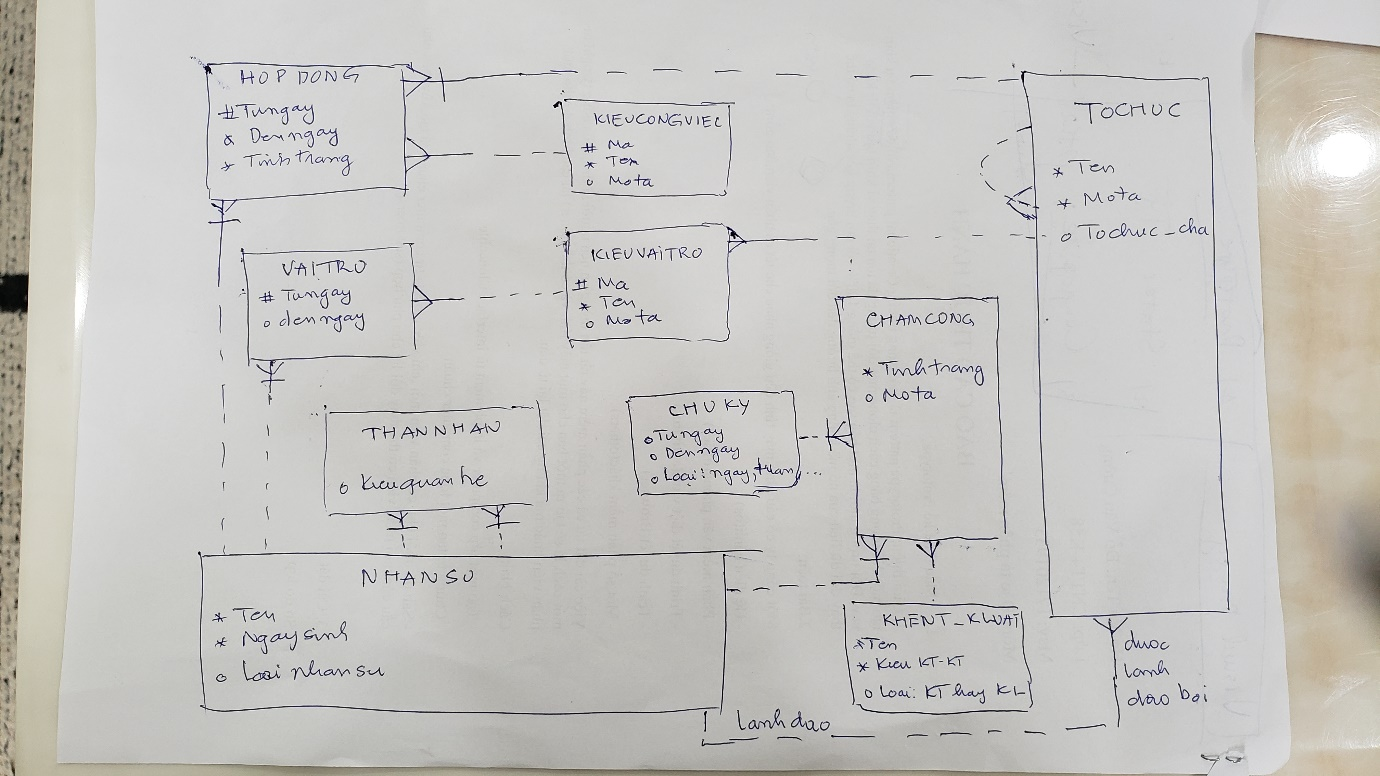 HOPDONG
# Tungay
* Denngay
* Tinhtrang
KIEUCONGVIEC
# Ma
* Ten
o Mota
TOCHUC
* Ten
* Mota
o Tochuc_cha
VAITRO
# Tungay
o denngay
KIEUVAITRO
# Ma
* Ten
o Mota
CHAMCONG
* Tinhtrang
o Mota
THANNHAN
o Kieuquanhe
CHUKY
o Tungay
o Denngay
o Loại: ngay, tuan, ...
NHANSU
* Ten
* Ngaysinh
o Loai nhansu
KHENT_KLUAT
* Ten
* Kieu KT-KT
o Loai: KT hay KL
duoc
lanh
dao boi
lanhdao